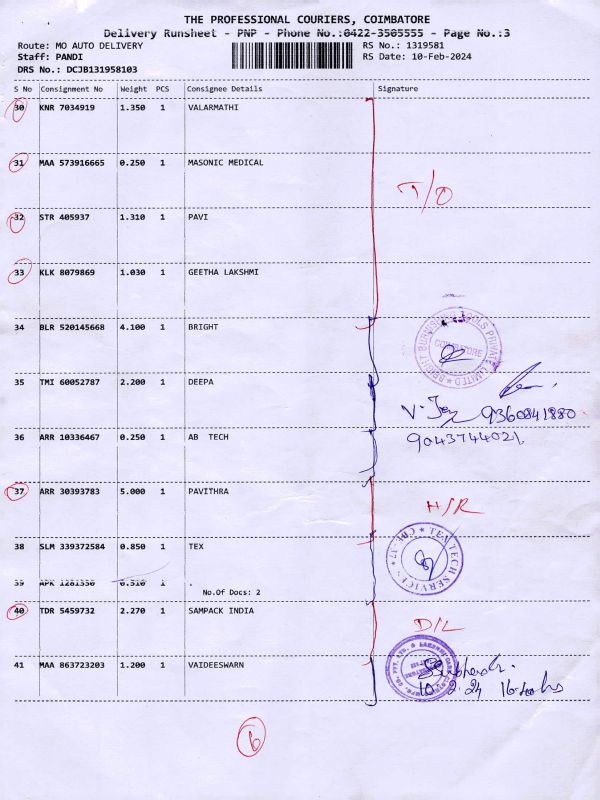 THE PROFESSIONAL COURIERS, COIMBATORE
Delivery Runsheet - PNP - Phone No.:0422-3505555 - Page No.:3
Route: MO AUTO DELIVERY
RS No.: 1319581
Staff: PANDI
RS Date: 10-Feb-2024
DRS No.: DCJB131958103
S No Consignment No Weight PCS Consignee Details Signature
30 KNR 7034919 1.350 1 VALARMATHI
31 MAA 573916665 0.250 1 MASONIC MEDICAL
T/O
32 STR 405937 1.310 1 PAVI
33 KLK 8079869 1.030 1 GEETHA LAKSHMI
34 BLR 520145668 4.100 1 BRIGHT
COIMBATORE
PRIVATE LIMITED
35 TMI 60052787 2.200 1 DEEPA
9360841880
9043744021
36 ARR 10336467 0.250 1 AB TECH
37 ARR 30393783 5.000 1 PAVITHRA
H/R
38 SLM 339372584 0.850 1 TEX
TEX TECH SERVICES
CBE-37
39 APK 1281350 0.510 1 .
No.Of Docs: 2
40 TDR 5459732 2.270 1 SAMPACK INDIA
D/L
41 MAA 863723203 1.200 1 VAIDEESWARN
10.2.24
6